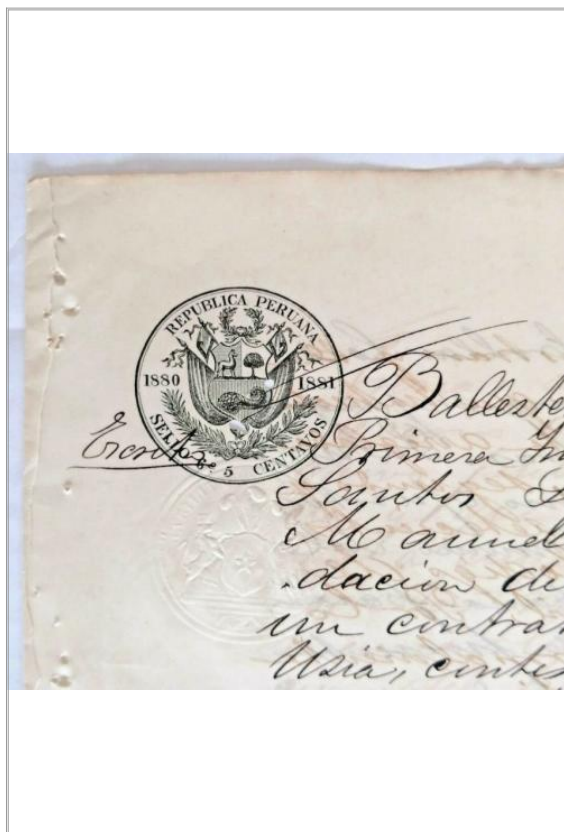 REPUBLICA PERUANA
1880 1881
SELLO 8º 5 CENTAVOS
Escrito
Balleste
Primera In
Santos
Manuel
dacion de
un contra
Usia, contes